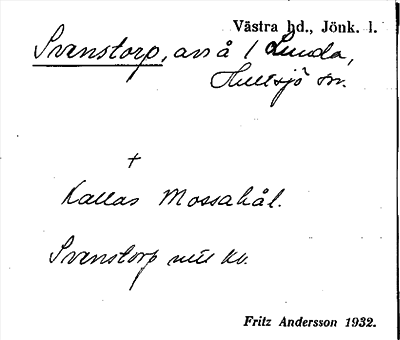 Västra hd., Jönk. l.
Svenstorp, avs å 1 Lunda,
Hultsjö sn.
+
Kallas Mossahål.
Svenstorp nu kv.
Fritz Andersson 1932.